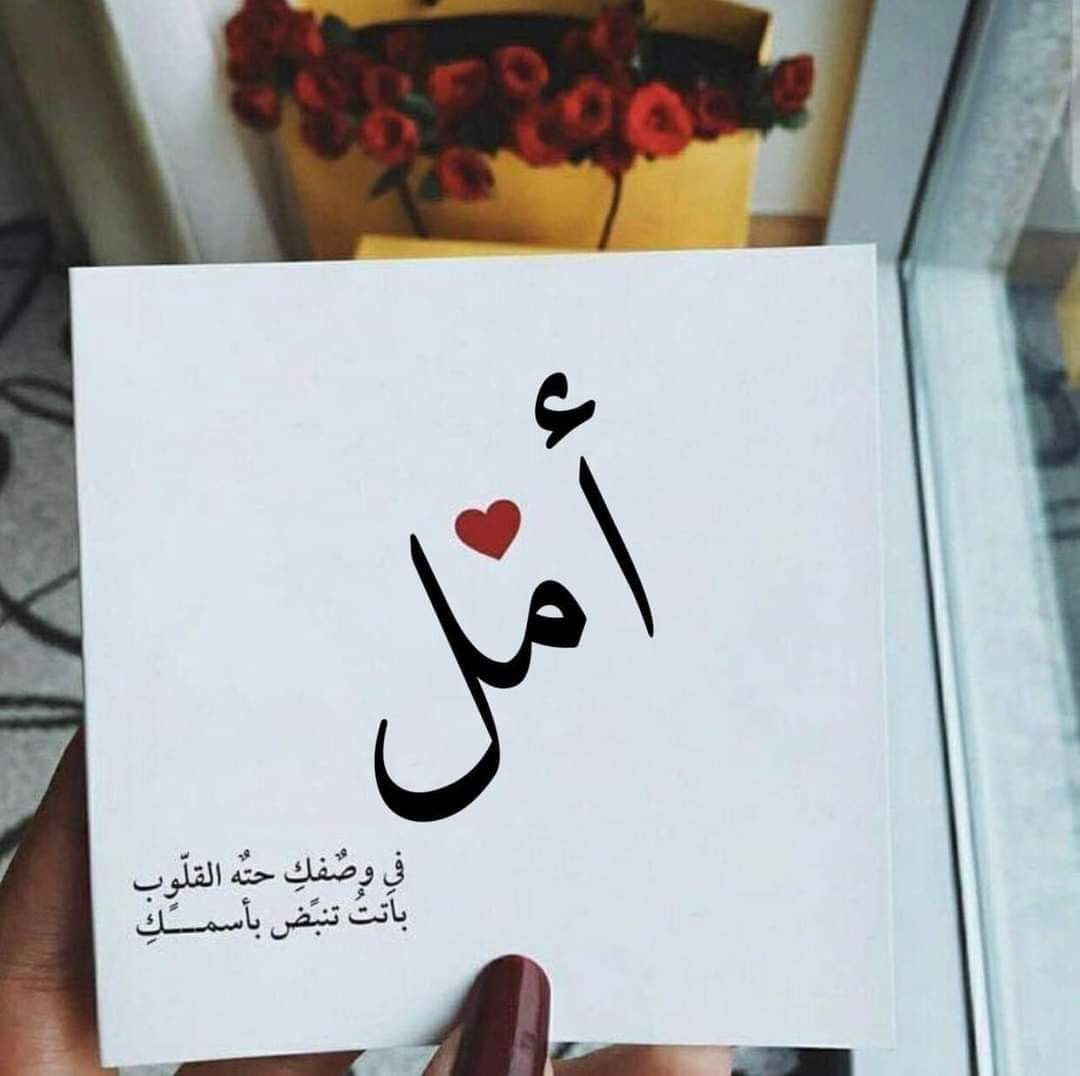 أمل
في وصٌفكِ حتهٌ القلّوب
باتتُ تنبًض بأسمــــكًِ